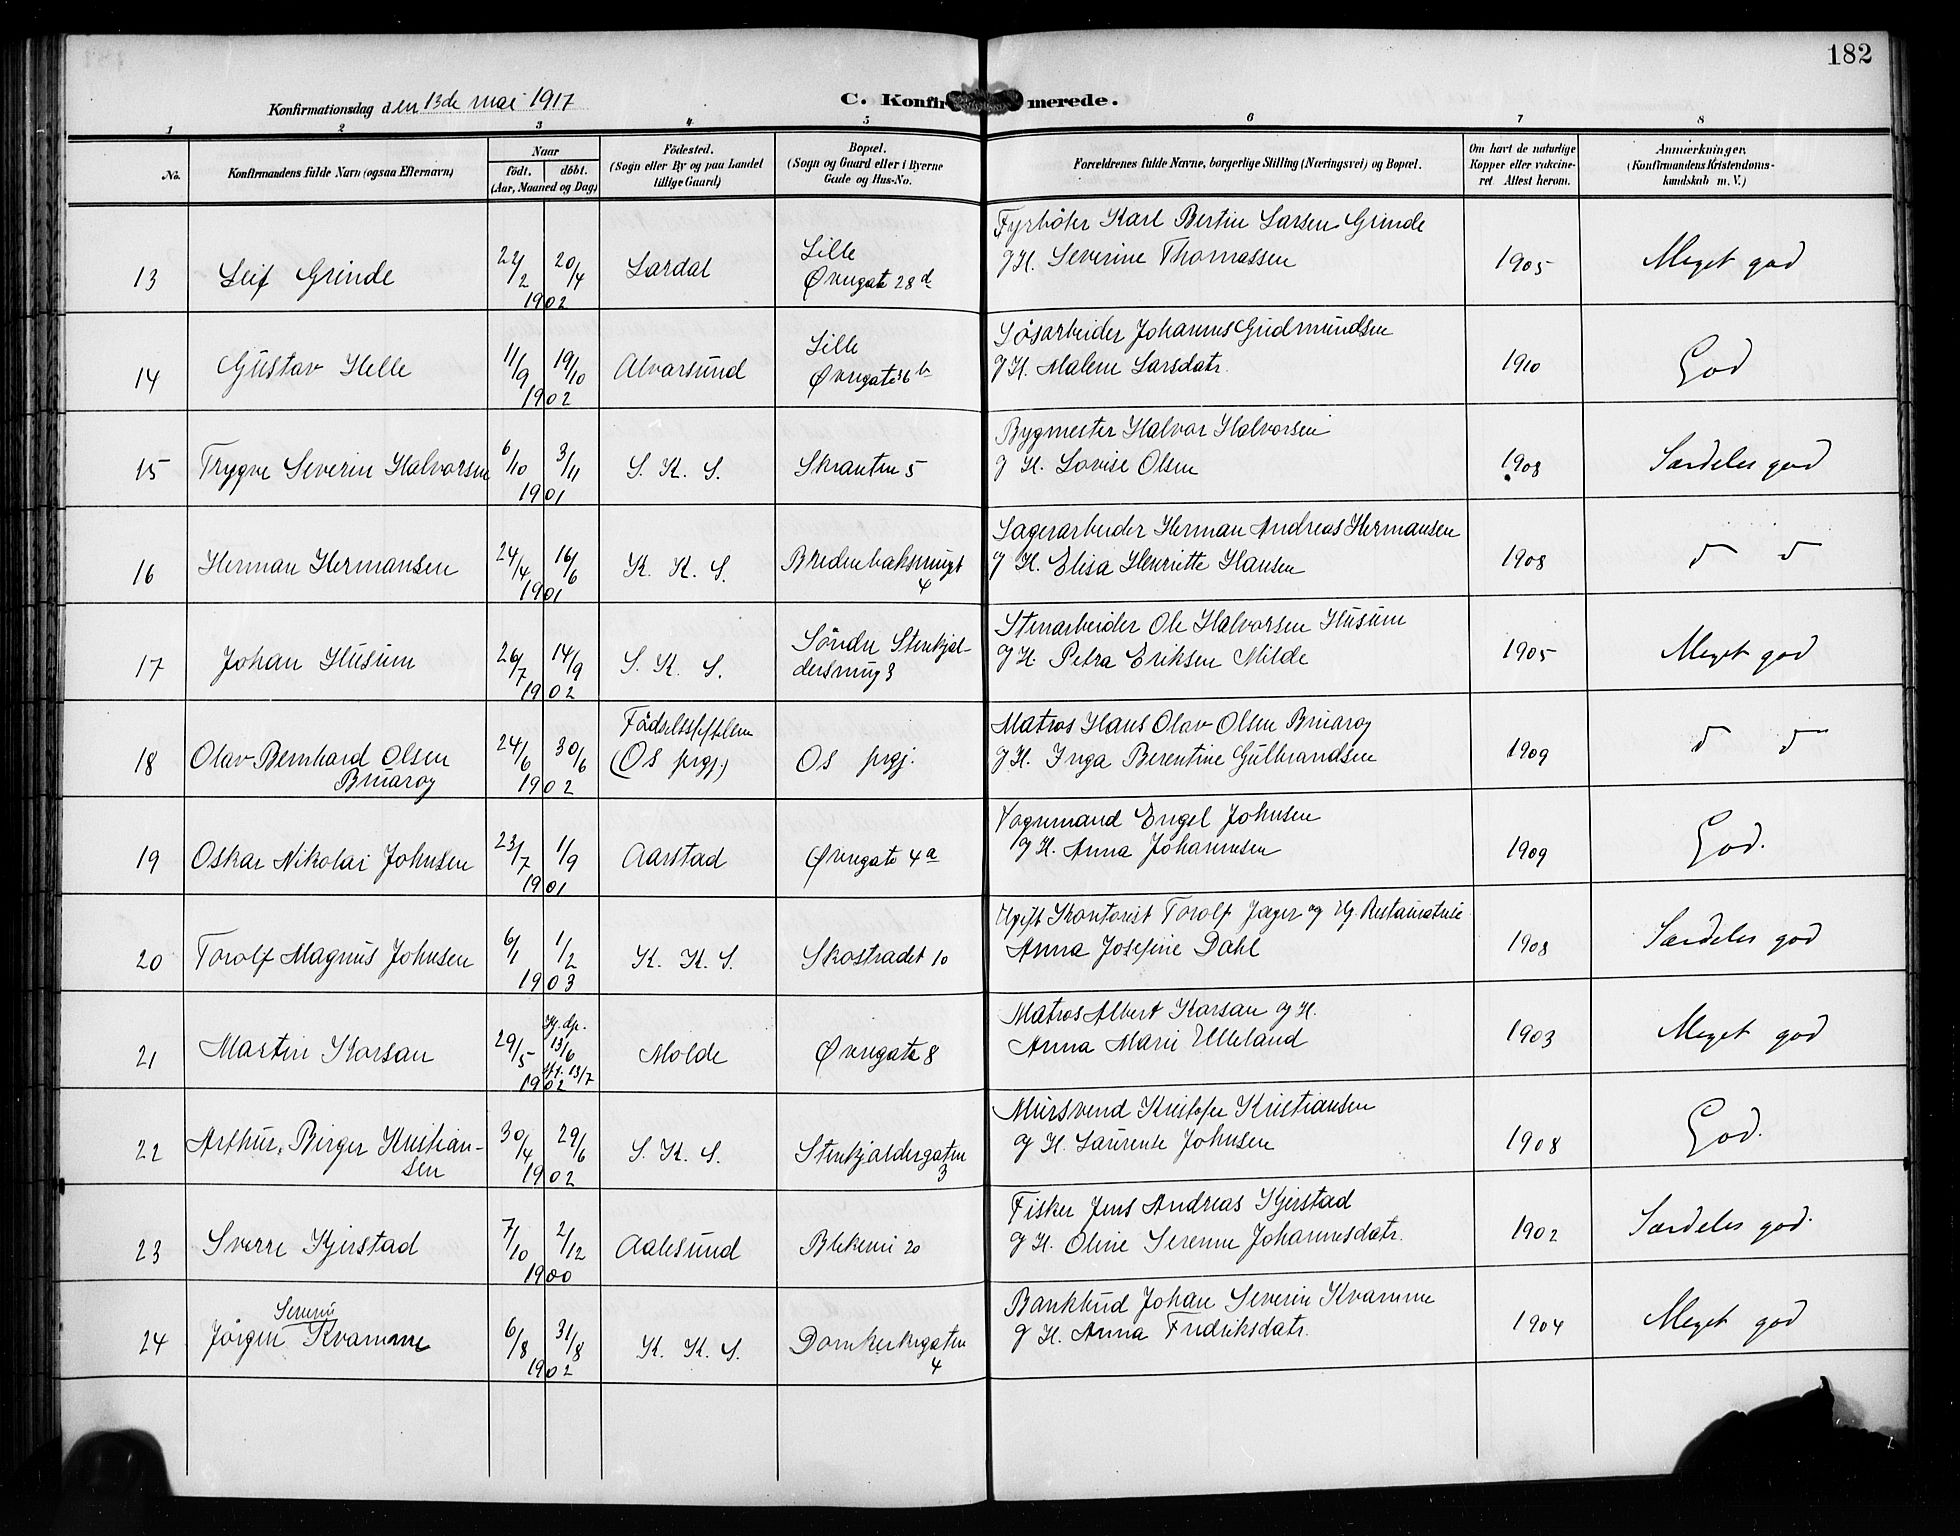 182
Konfirmationsdag den 13de mai 1917
C. Konfirmerede.
1 2 3 4 5 6 7 8
No.
Konfirmandens fulde Navn (ogsaa Efternavn)
Naar
födt. döbt.
(Aar, Maaned og Dag)
Födested.
(Sogn eller By og paa Landet
tillige Gaard)
Bopæl.
(Sogn og Gaard eller i Byerne
Gade og Hus-No.
Forældrenes fulde Navne, borgerlige Stilling (Næringsvei) og Bopæl.
Om havt de naturlige
Kopper eller vakcine-
ret Attest herom.
Anmærkninger.
(Konfirmandens Kristendoms-
kundskab m. V.)
13 Leif Grinde 22/2 20/4 1902 Lærdal
Lille
Øvregate 28d
Fyrböter Karl Bertin Larsen Grinde
g H. Severine Thomassen
1905 Meget god
14 Gustav Helle 11/9 19/10 1902 Alvarsund
Lille
Øvregate 36b
Løsarbeider Johannes Gudmundsen
g H. Malene Larsdatr.
1910 God
15 Trygve Severin Halvorsen 6/10 3/11 1901 S. K. S. Skranten 5
Bygmester Halvor Halvorsen
g H. Lovise Olsen
1908 Særdeles god
16 Herman Hermansen 24/4 16/6 1901 K. K. S.
Bredenbaksmugt
4
Lagerarbeider Herman Andreas Hermansen
g H. Elisa Henriette Hansen
1908 d d
17 Johan Husum 26/7 14/9 1902 S. K. S.
Söndre Stenkjel-
dersmug 3
Stenarbeider Ole Halvorsen Husum
g H. Petra Eriksen Milde
1905 Meget god
18 Olav Bernhard Olsen
Bruarøy
24/6 30/6 1902
Födselsstiftelsen
(Os prgj.)
Os prgj.
Matros Hans Olav Olsen Bruarøy
g H. Inga Berentine Gulbrandsen
1909 d d
19 Oskar Nikolai Johnsen 23/7 1/9 1901 Aarstad Øvregate 4a
Vognmand Engel Johnsen
g H. Anna Johannesen
1909 God.
20 Torolf Magnus Johnsen 6/1 1/2 1903 K. K. S. Skostrædet 10
Ugift Kontorist Torolf Jæger og Ug. Restauratrise
Anna Josefine Dahl
1908 Særdeles god
21 Martin Korsan 29/5 Hj. dp. 13/6 st. 13/7 1902 Molde Øvregate 8
Matros Albert Korsan g H.
Anna Marie Ulleland
1903 Meget god
22 Arthur Birger Kristian-
sen
30/4 29/6 1902 S. K. S.
Stenkjeldergaten
3
Mursvend Kristofer Kristiansen
g H. Laurense Johnsen
1908 God.
23 Sverre Kjerstad 7/10 2/12 1900 Aalesund Blekevei 20
Fisker Jens Andreas Kjerstad
g H. Oline Serenne Johannesdatr.
1902 Særdeles god.
24 Jörgen Severin Kvamme 6/8 31/8 1902 K. K. S.
Domkirkegaten
4
Bankbud Johan Severin Kvamme
g H. Anna Fredriksdatr.
1904 Meget god